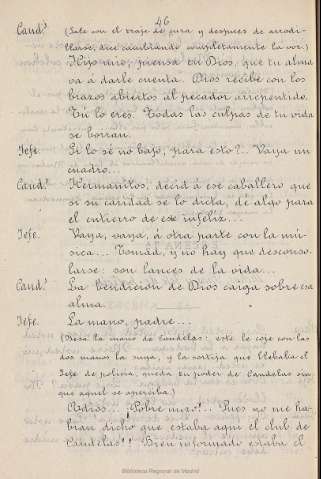 46
Candˢ. (Sale con el traje de cura y despues de arrodi-
llarse, dice cambiando completamente la voz.)
Hijo mio, piensa en Dios, que tu alma
va á darle cuenta. Dios recibe con los
brazos abiertos al pecador arrepentido.
Tu lo eres. Todas las culpas de tu vida
se borran.
Jefe. Si lo sé no bajo, para esto?.. Vaya un
cuadro...
Candˢ. Hermanitos, decid á ese caballero que
si su caridad se lo dicta, dé algo para
el entierro de ese infeliz...
Jefe. Vaya, vaya, á otra parte con la mú-
sica... Tomad, y no hay que desconso-
larse: son lances de la vida...
Candˢ. La bendicion de Dios caiga sobre esa
alma.
Jefe. La mano, padre...
(Besa la mano de Candelas: este le coje con las
dos manos la suya, y la sortija que llebaba el
Jefe de policia, queda en poder de Candelas sin
que aquel se aperciba.)
Adios... ¡Pobre mozo!.. Pues yo me ha-
bian dicho que estaba aqui el club de
Candelas!! Bien informado estaba el
Biblioteca Regional de Madrid